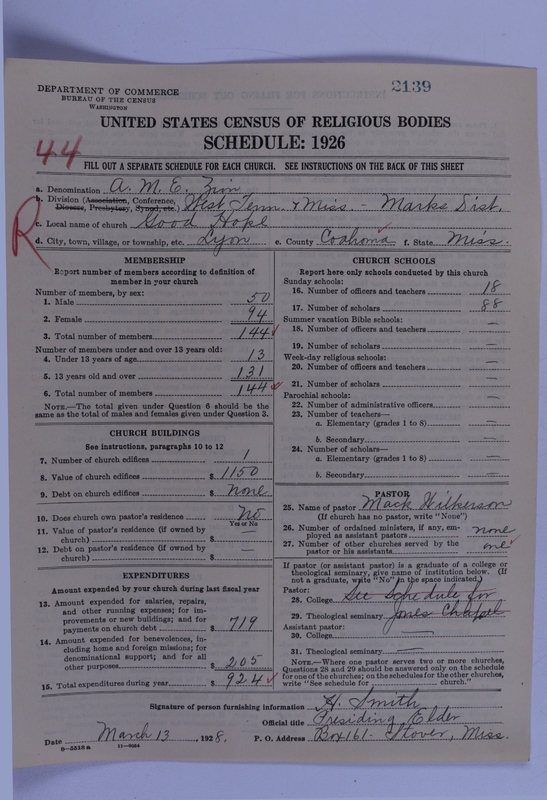 2139
DEPARTMENT OF COMMERCE
BUREAU OF THE CENSUS
WASHINGTON
UNITED STATES CENSUS OF RELIGIOUS BODIES
SCHEDULE: 1926
44
FILL OUT A SEPARATE SCHEDULE FOR EACH CHURCH. SEE INSTRUCTIONS ON THE BACK OF THIS SHEET
R
a. Denomination A. M. E. Zion
b. Division (Association, Conference, Diocese, Presbytery, Synod, etc.) West Tenn. & Miss. - Marks Dist.
c. Local name of church Good Hope
d. City, town, village, or township, etc. Lyon e. County Coahoma f. State Miss.
MEMBERSHIP
Report number of members according to definition of
member in your church
Number of members, by sex:
1. Male 50
2. Female 94
3. Total number of members 144
Number of members under and over 13 years old:
4. Under 13 years of age 13
5. 13 years old and over 131
6. Total number of members 144
NOTE.—The total given under Question 6 should be the
same as the total of males and females given under Question 3.
CHURCH BUILDINGS
See instructions, paragraphs 10 to 12
7. Number of church edifices 1
8. Value of church edifices $ 1150
9. Debt on church edifices $ None
10. Does church own pastor's residence? No
Yes or No
11. Value of pastor's residence (if owned by
church) $ —
12. Debt on pastor's residence (if owned by
church) $ —
EXPENDITURES
Amount expended by your church during last fiscal year
13. Amount expended for salaries, repairs,
and other running expenses; for im-
provements or new buildings; and for
payments on church debt $ 719
14. Amount expended for benevolences, in-
cluding home and foreign missions; for
denominational support; and for all
other purposes $ 205
15. Total expenditures during year $ 924
CHURCH SCHOOLS
Report here only schools conducted by this church
Sunday schools:
16. Number of officers and teachers 18
17. Number of scholars 88
Summer vacation Bible schools:
18. Number of officers and teachers —
19. Number of scholars —
Week-day religious schools:
20. Number of officers and teachers —
21. Number of scholars —
Parochial schools:
22. Number of administrative officers —
23. Number of teachers—
a. Elementary (grades 1 to 8) —
b. Secondary —
24. Number of scholars—
a. Elementary (grades 1 to 8) —
b. Secondary —
PASTOR
25. Name of pastor Mack Wilkerson
(If church has no pastor, write "None")
26. Number of ordained ministers, if any, em-
ployed as assistant pastors none
27. Number of other churches served by the
pastor or his assistants one
If pastor (or assistant pastor) is a graduate of a college or
theological seminary, give name of institution below. (If
not a graduate, write "No" in the space indicated.)
Pastor:
28. College See Schedule for
29. Theological seminary Jones Chapel
Assistant pastor:
30. College —
31. Theological seminary —
NOTE.—Where one pastor serves two or more churches,
Questions 28 and 29 should be answered only on the schedule
for one of the churches; on the schedules for the other churches,
write "See schedule for church."
Signature of person furnishing information H. Smith
Official title Presiding Elder
Date March 13, 1928. P. O. Address Box 161 - Stover, Miss.
8-5518a 11-9084